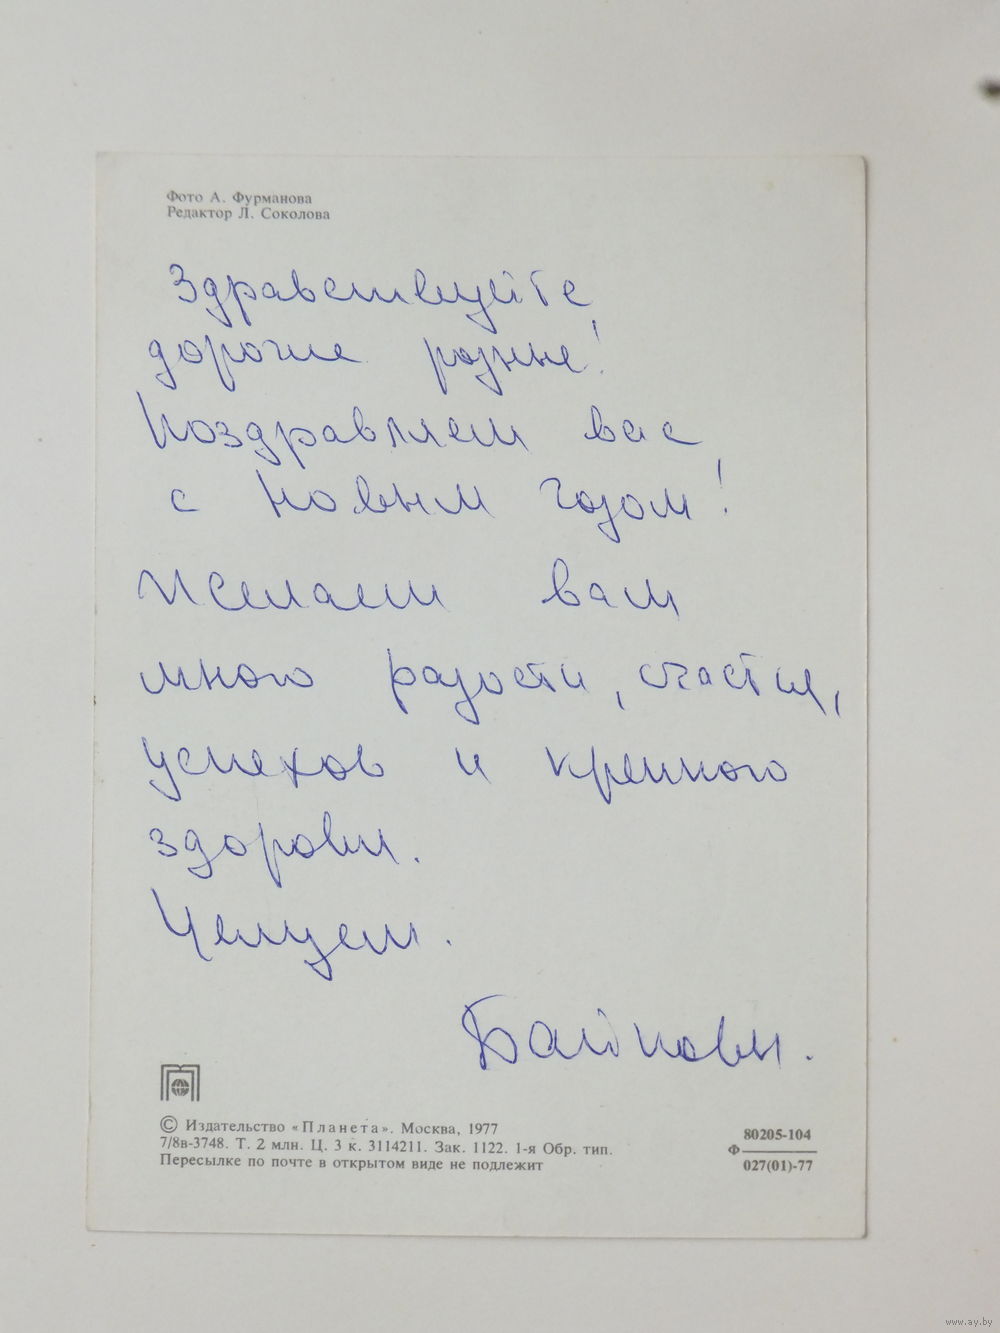 Фото А. Фурманова
Редактор Л. Соколова
Здравствуйте,
дорогие родные!
Поздравляем вас
с Новым годом!
Желаем вам
много радости, счастья,
успехов и крепкого
здоровья.
Целуем.
Байковы.
© Издательство «Планета». Москва, 1977
7/8в-3748. Т. 2 млн. Ц. 3 к. 3114211. Зак. 1122. 1-я Обр. тип.
Пересылке по почте в открытом виде не подлежит
80205-104
Ф
027(01)-77
www.ay.by